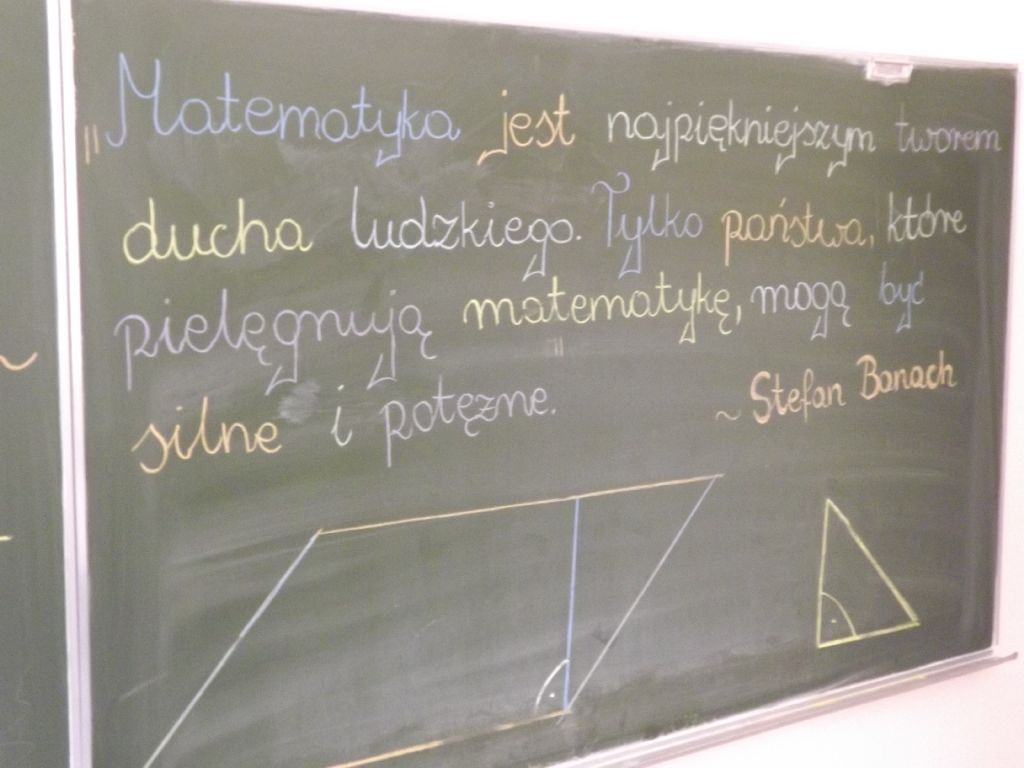 "Matematyka jest najpiękniejszym tworem
ducha ludzkiego. Tylko państwa, które
pielęgnują matematykę, mogą być
silne i potęzne."
~ Stefan Banach